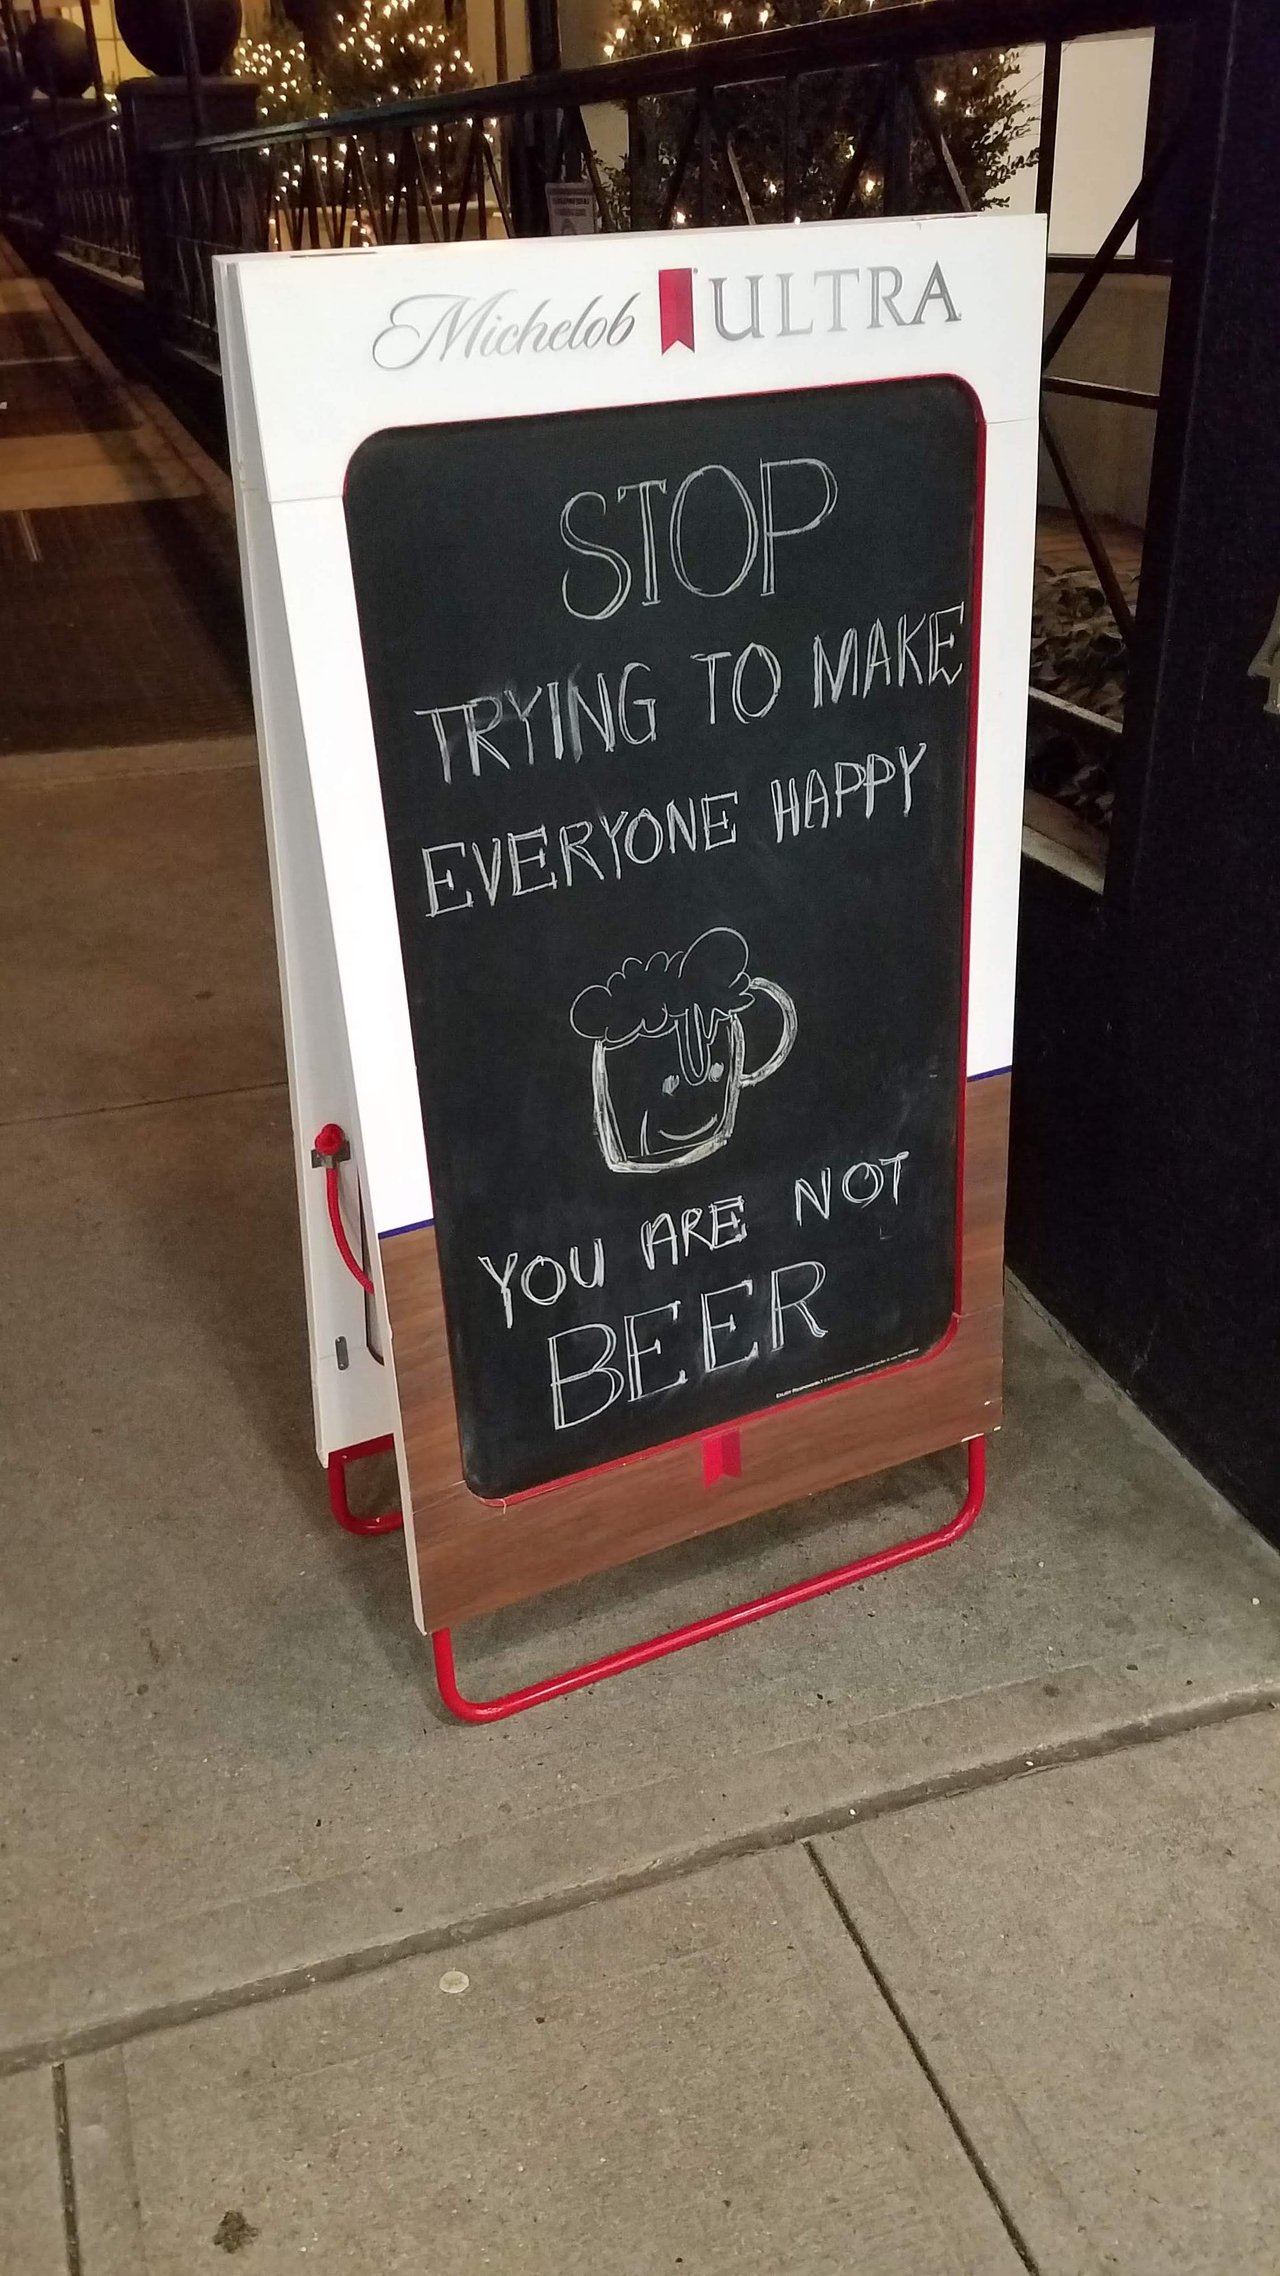 Michelob ULTRA
STOP
TRYING TO MAKE
EVERYONE HAPPY
YOU ARE NOT
BEER